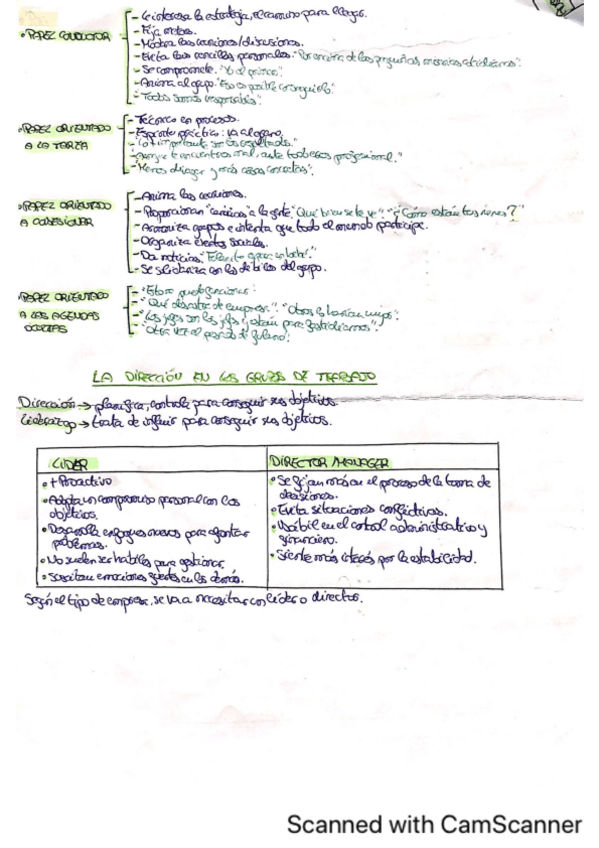 - Le interesa la estrategia, el camino para llegar.
• PAPEL CONDUCTOR - Fija metas.
- Modera las reuniones/discusiones.
- Evita las rencillas personales. "Por encima de las pequeñas
- Se compromete. "Yo el primero".
- Anima al grupo. "Eso es posible conseguirlo".
- "Todos somos responsables".
• PAPEL ORIENTADO A LA TAREA
- Técnico en procesos.
- Espíritu práctico: va al grano.
- "Lo importante son los resultados."
- "Aunque te encuentres mal, ante todo eres profesional."
- "Menos divagar y más cosas concretas".
• PAPEL ORIENTADO A COHESIONAR
- Anima las reuniones.
- Proporcionan "caricias" a la gente, "Qué bien se te ve". "¿Cómo están tus nenes?"
- Armoniza grupos e intenta que todo el mundo participe.
- Organiza eventos sociales.
- Da noticias.
- Se solidariza con los débiles del grupo.
• PAPEL ORIENTADO A LAS AGENDAS OCULTAS
- "Estoy quemado
- "Qué desastre de empresa". "Otros lo harían mejor".
- "Los jefes son los jefes y están para fastidiarnos".
- "Otra vez el pesado de fulano".
LA DIRECCIÓN EN LOS GRUPOS DE TRABAJO
Dirección → planifica, controla para conseguir sus objetivos.
Liderazgo → trata de influir para conseguir sus objetivos.
LIDER
• + Proactivo
• Adopta un compromiso personal con los
objetivos.
• Desarrolla enfoques nuevos para afrontar
problemas.
• No suelen ser hábiles para gestionar.
• Suscitan emociones fuertes en los demás.
DIRECTOR/MANAGER
• Se fijan más en el proceso de la toma de
decisiones.
• Evita situaciones conflictivas.
• Hábil en el control administrativo y
financiero.
• Siente más interés por la estabilidad.
Según el tipo de empresa, se va a necesitar un líder o director.
Scanned with CamScanner